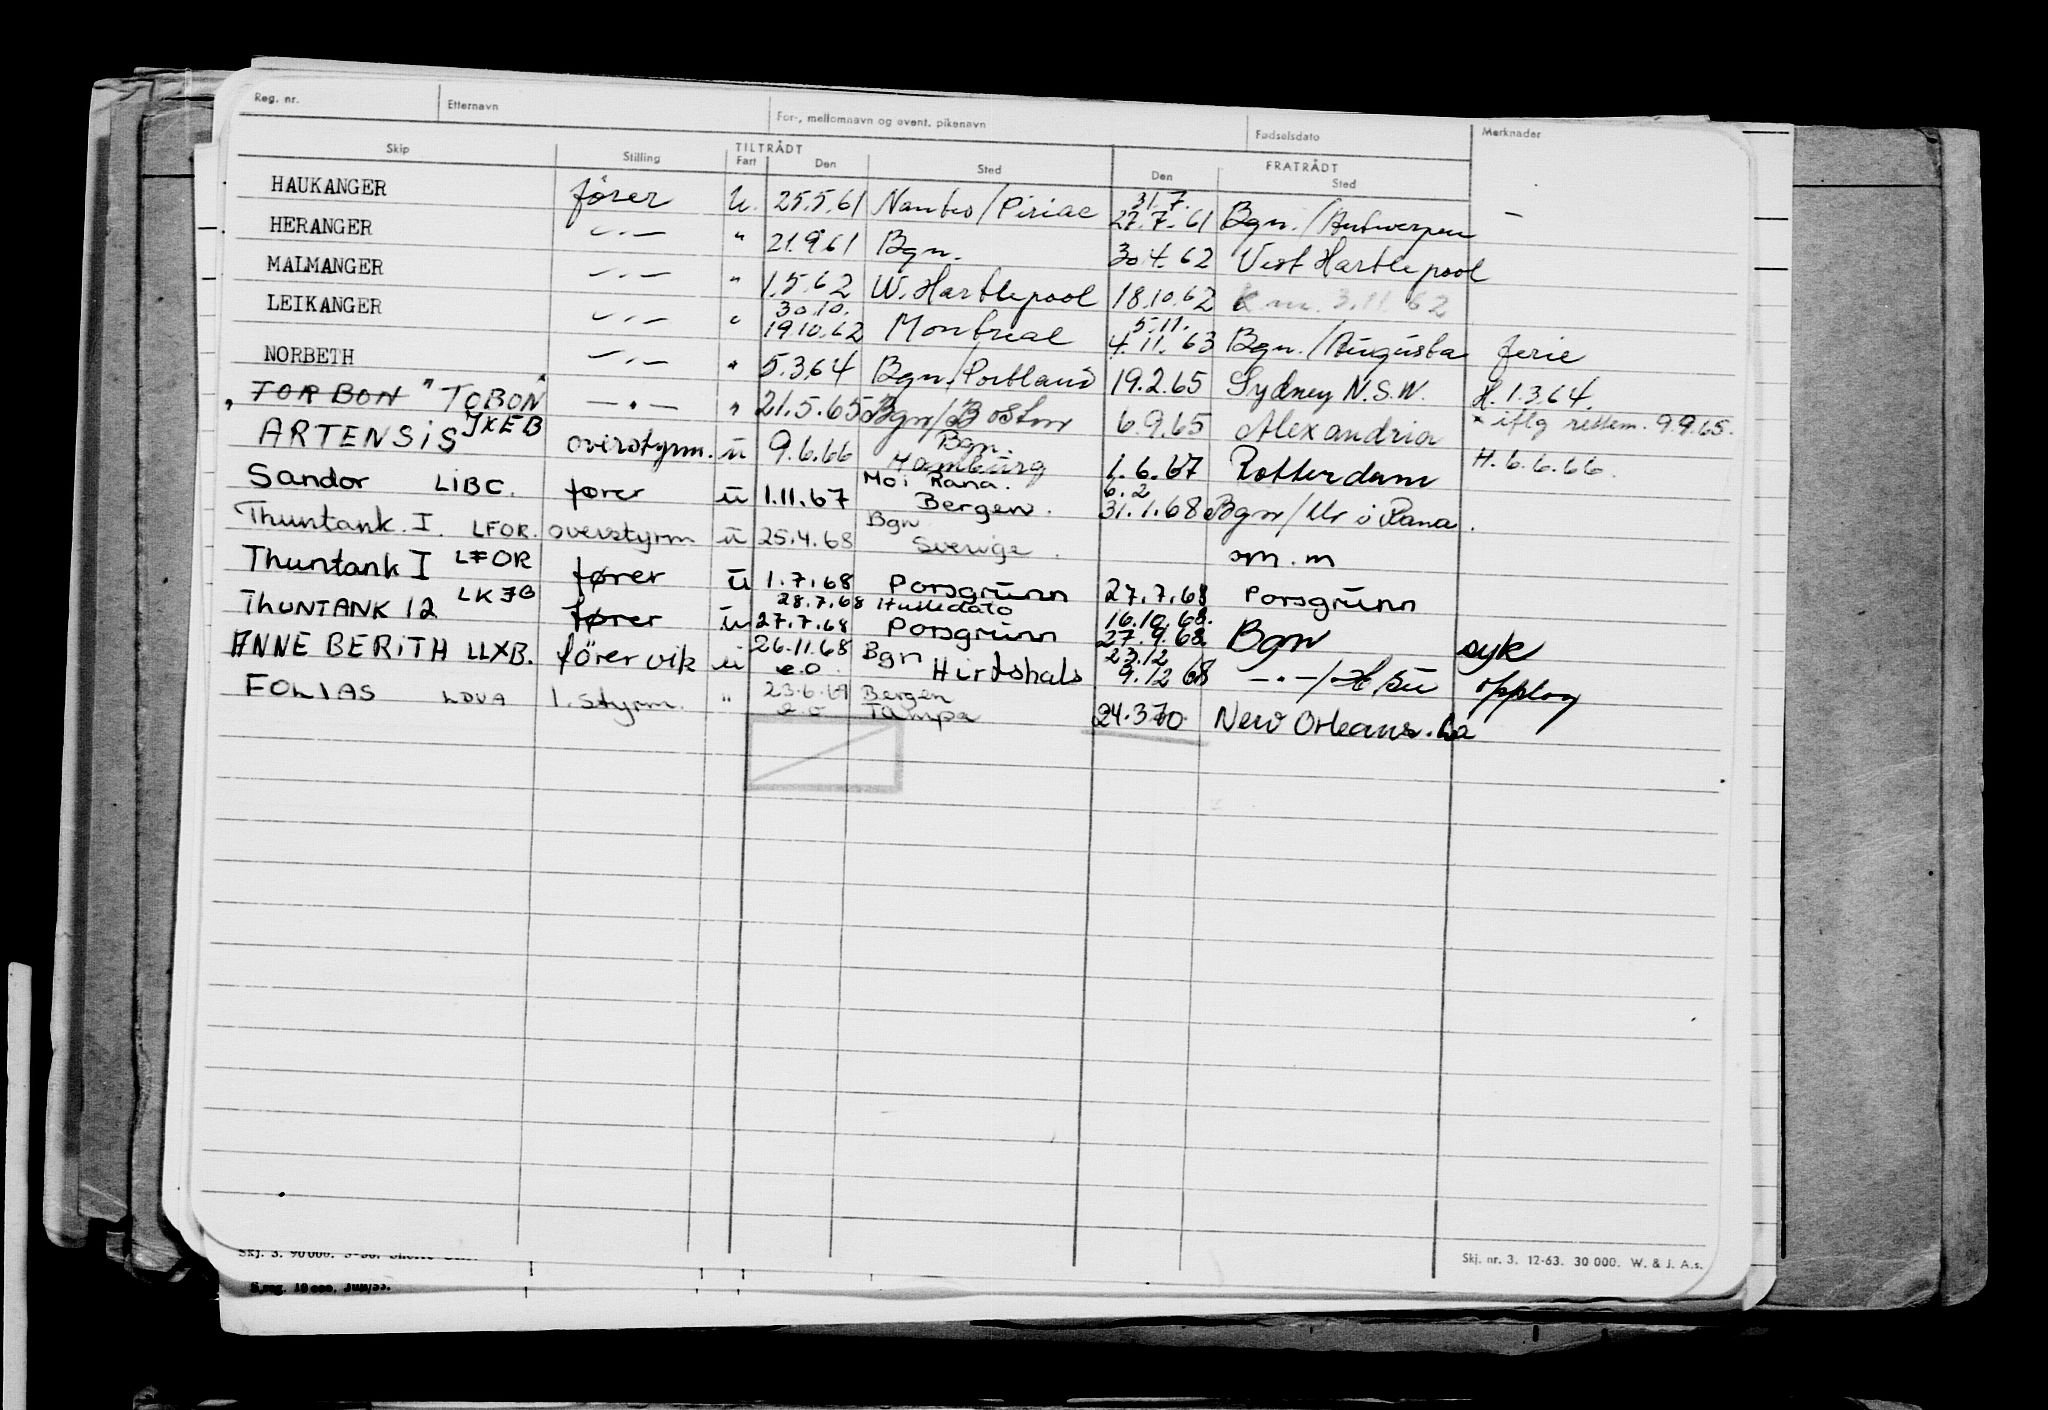 Reg. nr. Etternavn For-, mellomnavn og event. pikenavn Fødselsdato Merknader
TILTRÅDT FRATRÅDT
Skip Stilling Fart Den Sted Den Sted
31.7.
HAUKANGER fører U. 25.5.61 Nantes/Piriac 27.7.61 Bgn./Antwerpen —
HERANGER —.— " 21.9.61 Bgn. 30.4.62 Vest Hartlepool
MALMANGER —.— " 1.5.62 W. Hartlepool 18.10.62 3.11.62
30.10. 5.11.
LEIKANGER —.— " 19.10.62 Montreal 4.11.63 Bgn./Augusta ferie
NORBETH —.— " 5.3.64 Bgn./Portland 19.2.65 Sydney N.S.W. H. 1.3.64.
TORBON "TOBON" —.— " 21.5.65 Bgn/Boston 6.9.65 Alexandria * iflg rettem. 9.9.65.
Bgn.
ARTENSIS JXEB overstyrm. ū 9.6.66 Hamburg 1.6.67 Rotterdam H. 6.6.66.
Mo i Rana. 6.2
Sandor LIBC. fører ū 1.11.67 Bergen. 31.1.68 Bgn/Mo i Rana.
Bgn
Thuntank. I. LFOR. overstyrm ū 25.4.68 Sverige. om.m
Thuntank I LFOR fører ū 1.7.68 Porsgrunn 27.7.68 Porsgrunn
28.7.68 Hulledato 16.10.68.
THUNTANK 12 LKJB fører ū 27.7.68 Porsgrunn 27.9.68 Bgn syk
26.11.68 Bgn 23.12
ANNE BERITH LLXB. fører vik ū e.o. Hirtshals 9.12 68 —.—/ opplag
23.6.69 Bergen
FOLIAS LDVA 1. styrm. " e.o Tampa 24.3.70. New Orleans. La
Skj. nr. 3. 12-63. 30 000. W. & J. A.s.
Skj. 3. 90 000.